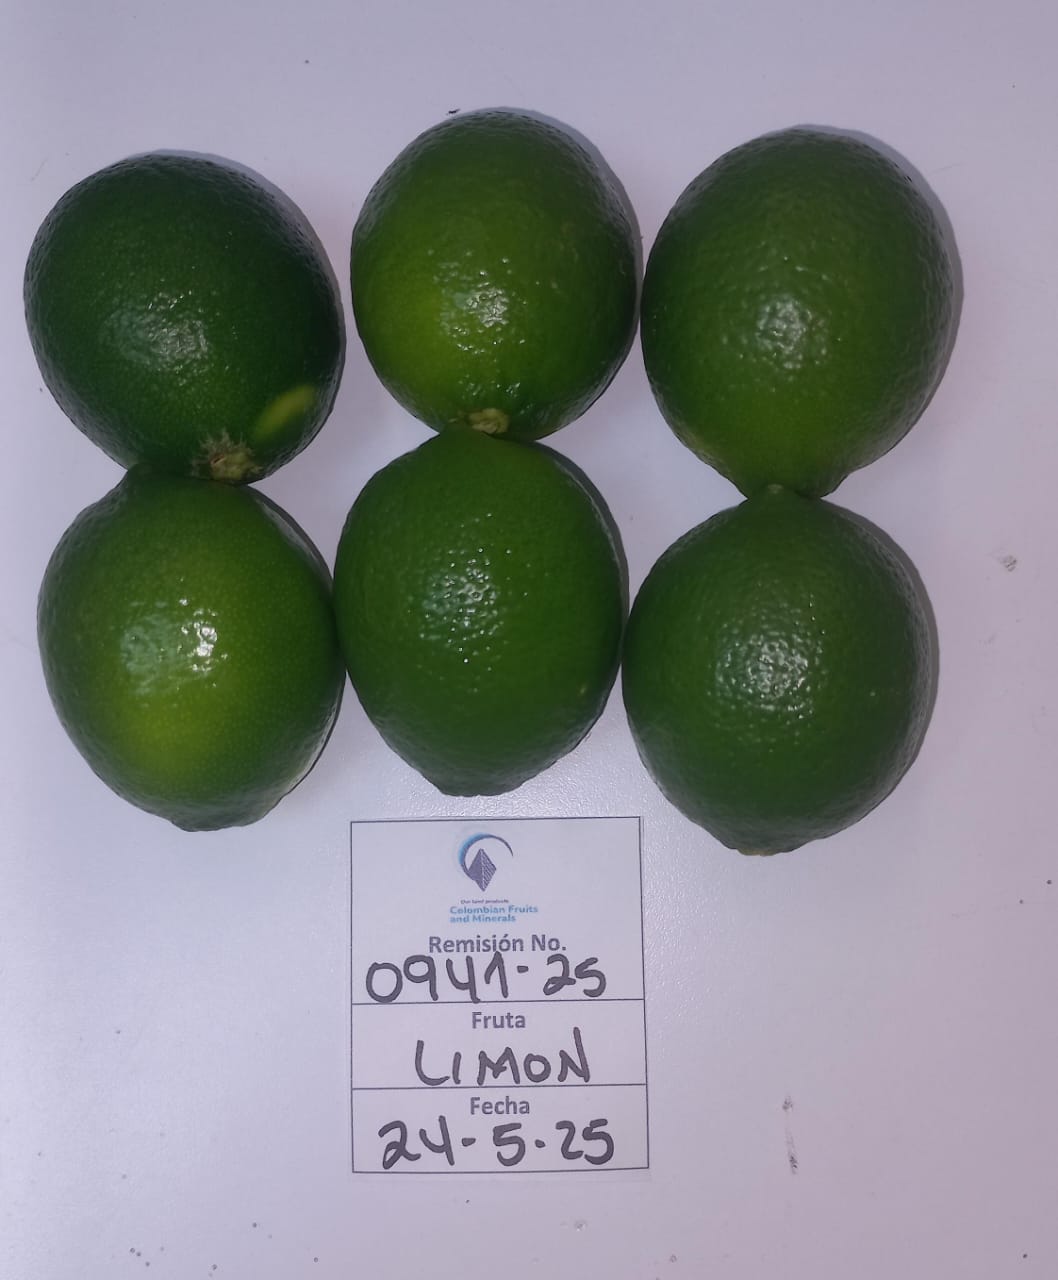 Our land products
Colombian Fruits
and Minerals
Remisión No.
0941-25
Fruta
LIMON
Fecha
24-5-25